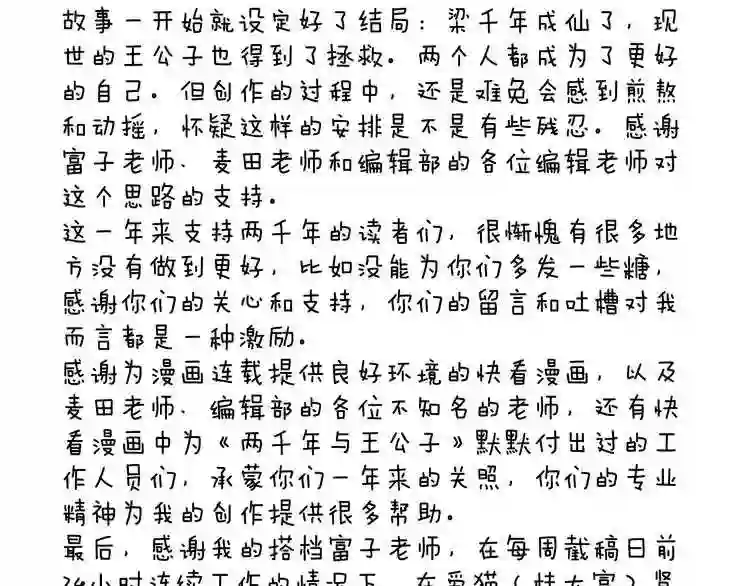 故事一开始就设定好了结局：梁千年成仙了，现
世的王公子也得到了拯救。两个人都成为了更好
的自己。但创作的过程中，还是难免会感到煎熬
和动摇，怀疑这样的安排是不是有些残忍。感谢
富子老师、麦田老师和编辑部的各位编辑老师对
这个思路的支持。
这一年来支持两千年的读者们，很惭愧有很多地
方没有做到更好，比如没能为你们多发一些糖，
感谢你们的关心和支持，你们的留言和吐槽对我
而言都是一种激励。
感谢为漫画连载提供良好环境的快看漫画，以及
麦田老师、编辑部的各位不知名的老师，还有快
看漫画中为《两千年与王公子》默默付出过的工
作人员们，承蒙你们一年来的关照，你们的专业
精神为我的创作提供很多帮助。
最后，感谢我的搭档富子老师，在每周截稿日前
24小时连续工作的情况下，在爱猫（